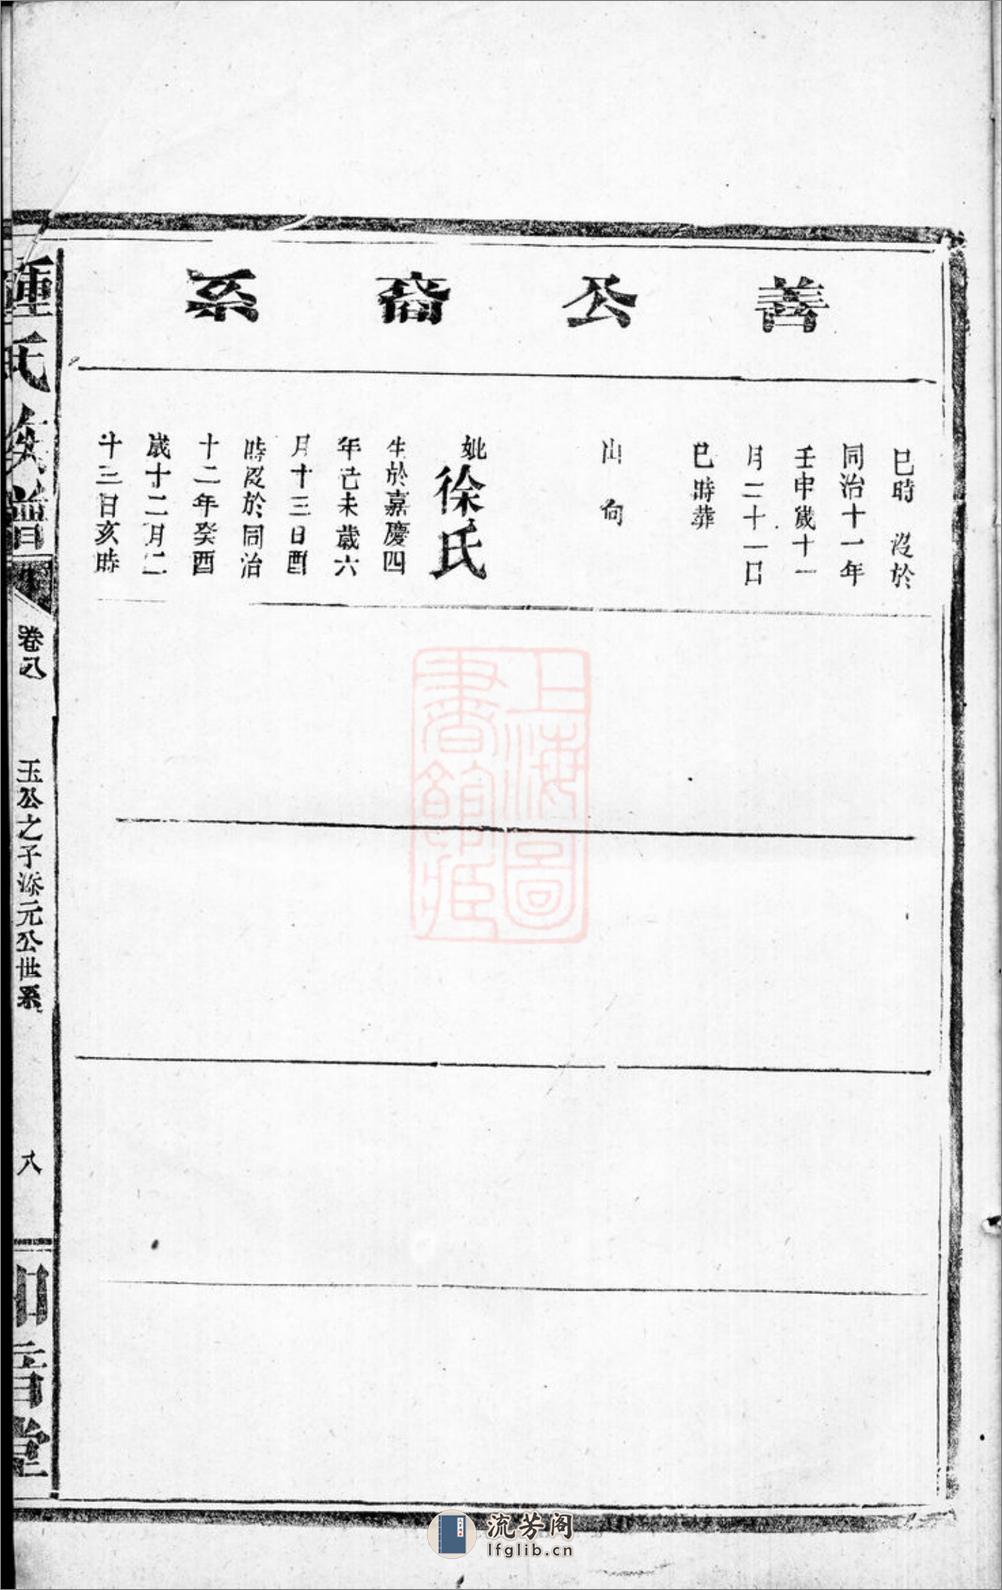 善公裔系
巳時 沒於
同治十一年
壬申歲十一
月二十一日
巳時葬
山向
妣徐氏
生於嘉慶四
年己未歲六
月十三日酉
時沒於同治
十二年癸酉
歲十二月二
十三日亥時
鍾氏族譜
卷八
玉公之子添元公世系
八
知音堂
上海圖
書館藏
流芳阁
lfglib.cn